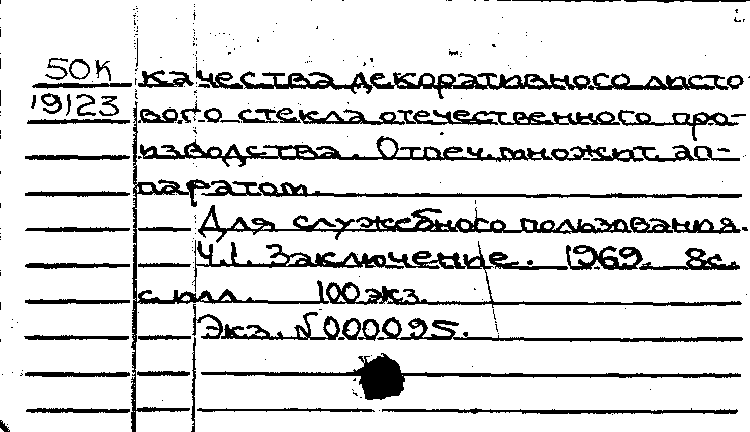 50К качества декоративного листо-
19123 вого стекла отечественного про-
изводства. Отпеч.множит. ап-
паратом.
Для служебного пользования.
Ч.1. Заключение. 1969. 8с.
с илл. 100 экз.
Экз. N 000095.